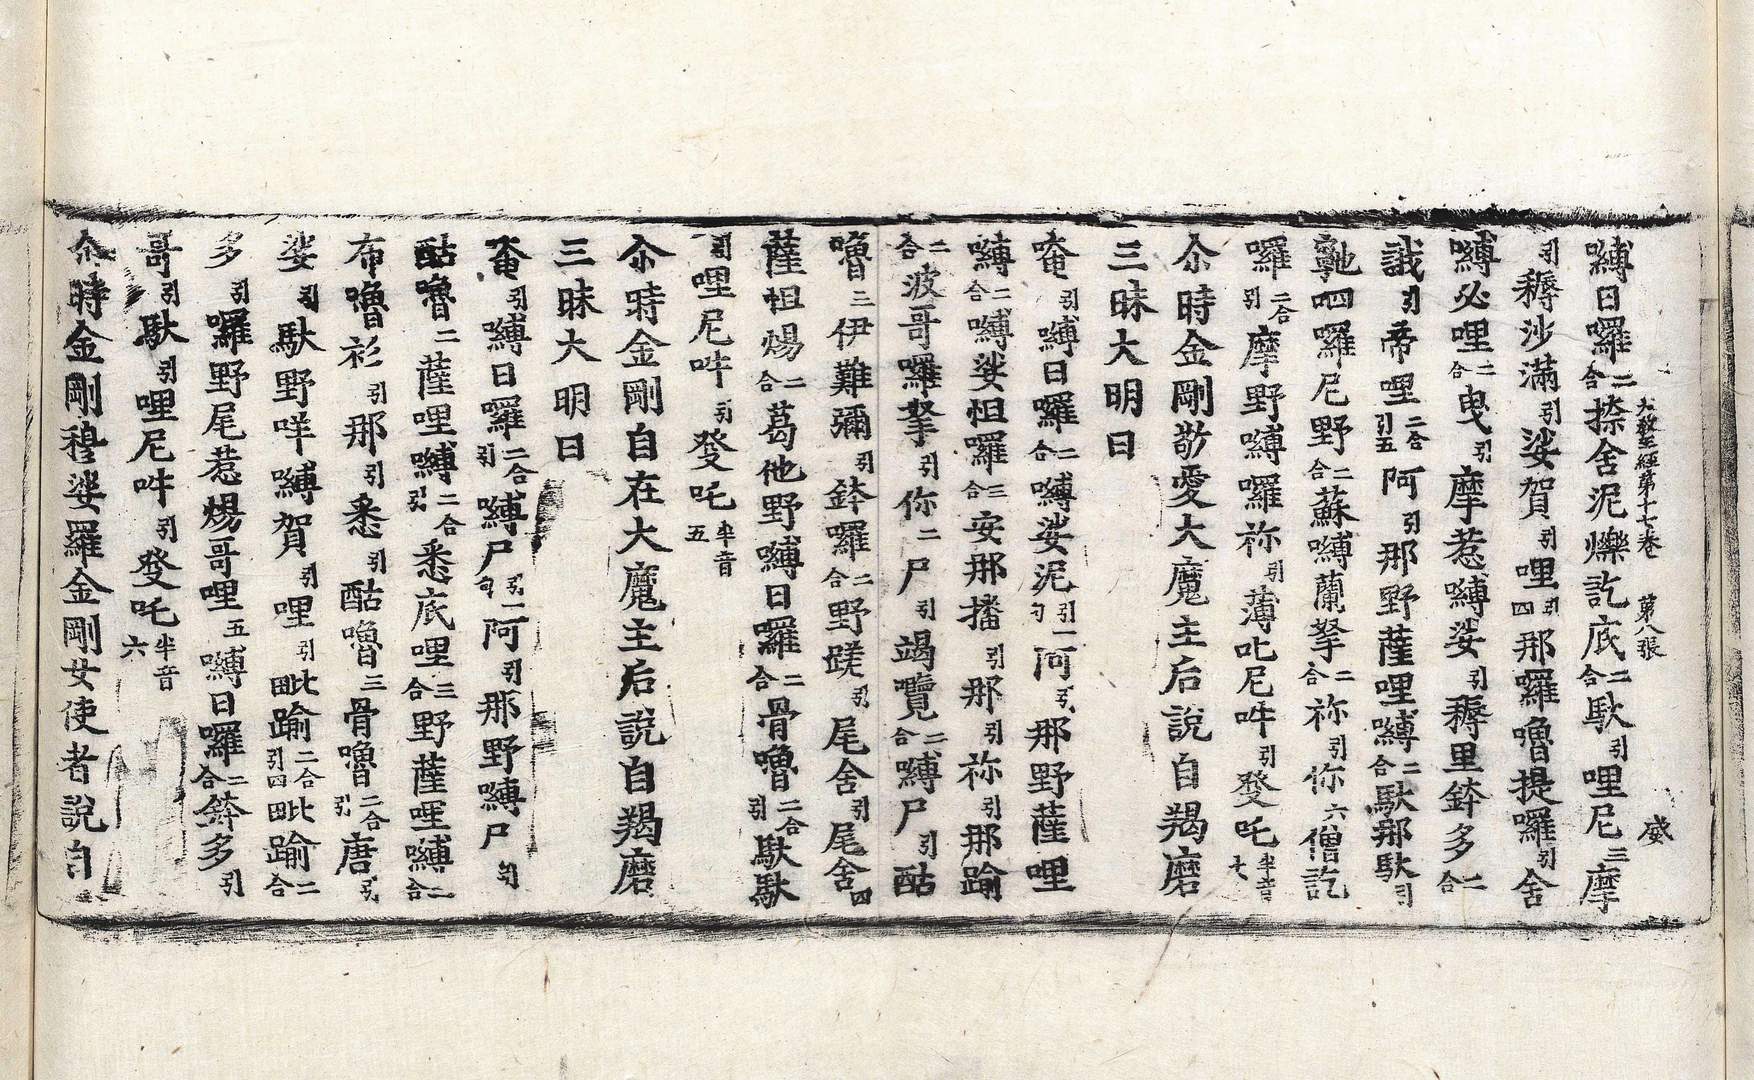 大教王經第十七卷　第八張　威
嚩日囉二合捺舍泥爍訖底二合馱引哩尼三摩
引穪沙滿引娑賀引哩引四那囉嚕提囉引舍
嚩必哩二合曳引摩惹嚩娑引穪里鉢多二合
誐引帝哩二合引五阿引那野薩哩嚩二合馱那馱引
䭾呬囉尼野二合蘇嚩蘭拏二合祢引你六僧訖
囉二合引摩野嚩囉祢引薄叱尼吽引癹吒半音七
尒時金剛敬愛大魔主后說自羯磨
三昧大明曰
唵引嚩日囉二合嚩娑泥引一句阿引那野薩哩
嚩二合嚩娑怛囉三合安那播引那引祢引那踰
二合波哥囉拏引你二尸引竭覽二合嚩尸引酤
嚕三伊難彌引鉢囉二合野蹉引尾舍引尾舍四
薩怛煬二合葛他野嚩日囉二合骨嚕二合引馱馱
引哩尼吽引癹吒半音五
尒時金剛自在大魔主后說自羯磨
三昧大明曰
唵引嚩日囉二合引嚩尸引一句阿引那野嚩尸引句
酤嚕二薩哩嚩二合引悉底哩三合野薩哩嚩二合
布嚕衫引那引悉引酤嚕三骨嚕二合引唐引
娑引馱野咩嚩賀引哩引毗踰二合引四毗踰二合
多引囉野尾惹煬哥哩五嚩日囉二合鉢多引
哥引馱引哩尼吽引癹吒半音六
尒時金剛穆娑羅金剛女使者說自